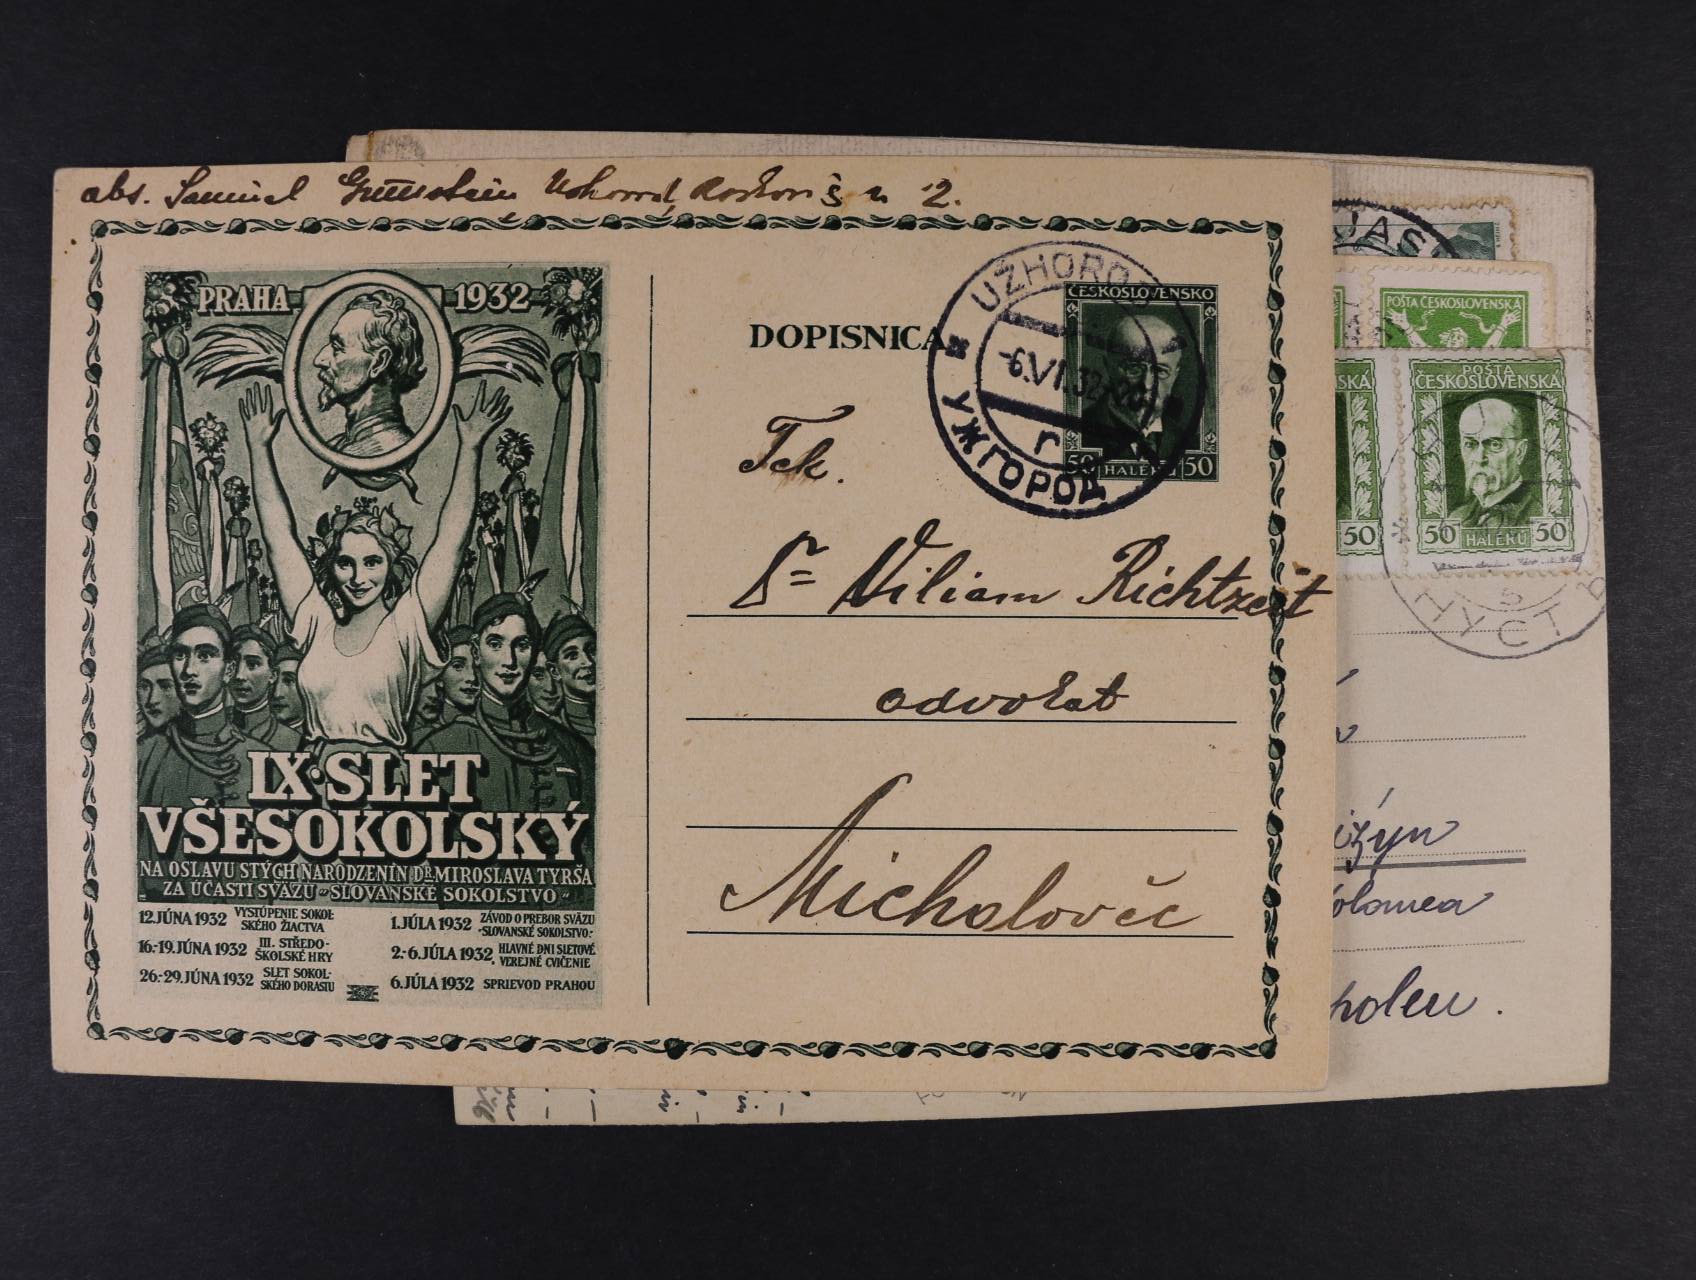 abs. Samuel Grünstein Užhorod, 2.
PRAHA 1932
IX. SLET
VŠESOKOLSKÝ
NA OSLAVU STÝCH NARODZENÍN DR. MIROSLAVA TYRŠA
ZA ÚČASTI SVÄZU „SLOVANSKÉ SOKOLSTVO“
12. JÚNA 1932 VYSTÚPENIE SOKOL-
SKÉHO ŽIACTVA
16.-19. JÚNA 1932 III. STŘEDO-
ŠKOLSKÉ HRY
26.-29. JÚNA 1932 SLET SOKOL-
SKÉHO DORASTU
1. JÚLA 1932 ZÁVOD O PREBOR SVÄZU
„SLOVANSKÉ SOKOLSTVO“
2.-6. JÚLA 1932 HLAVNÉ DNI SLETOVÉ
VEREJNÉ CVIČENIE
6. JÚLA 1932 SPRIEVOD PRAHOU
DOPISNICA
UŽHOROD 1
-6.VI.32-20
г
УЖГОРОД
ČESKOSLOVENSKO
50 HALÉŘŮ 50
Tek.
Dr Viliam Richtzeit
advokat
Michalovče
JAS
POŠTA ČESKOSLOVENSKÁ
SKÁ
50
POŠTA
ČESKOSLOVENSKÁ
50 HALÉŘŮ 50
ХУСТ
holen.